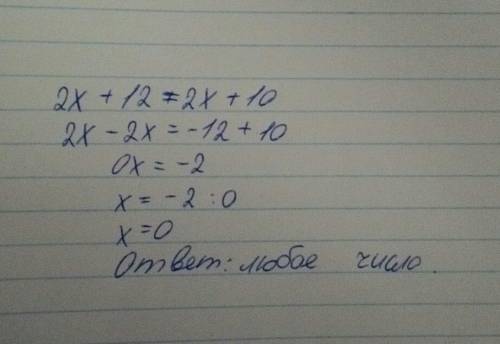 2x + 12 = 2x + 10
2x - 2x = -12 + 10
0x = -2
x = -2 : 0
x = 0
Ответ: любое число.